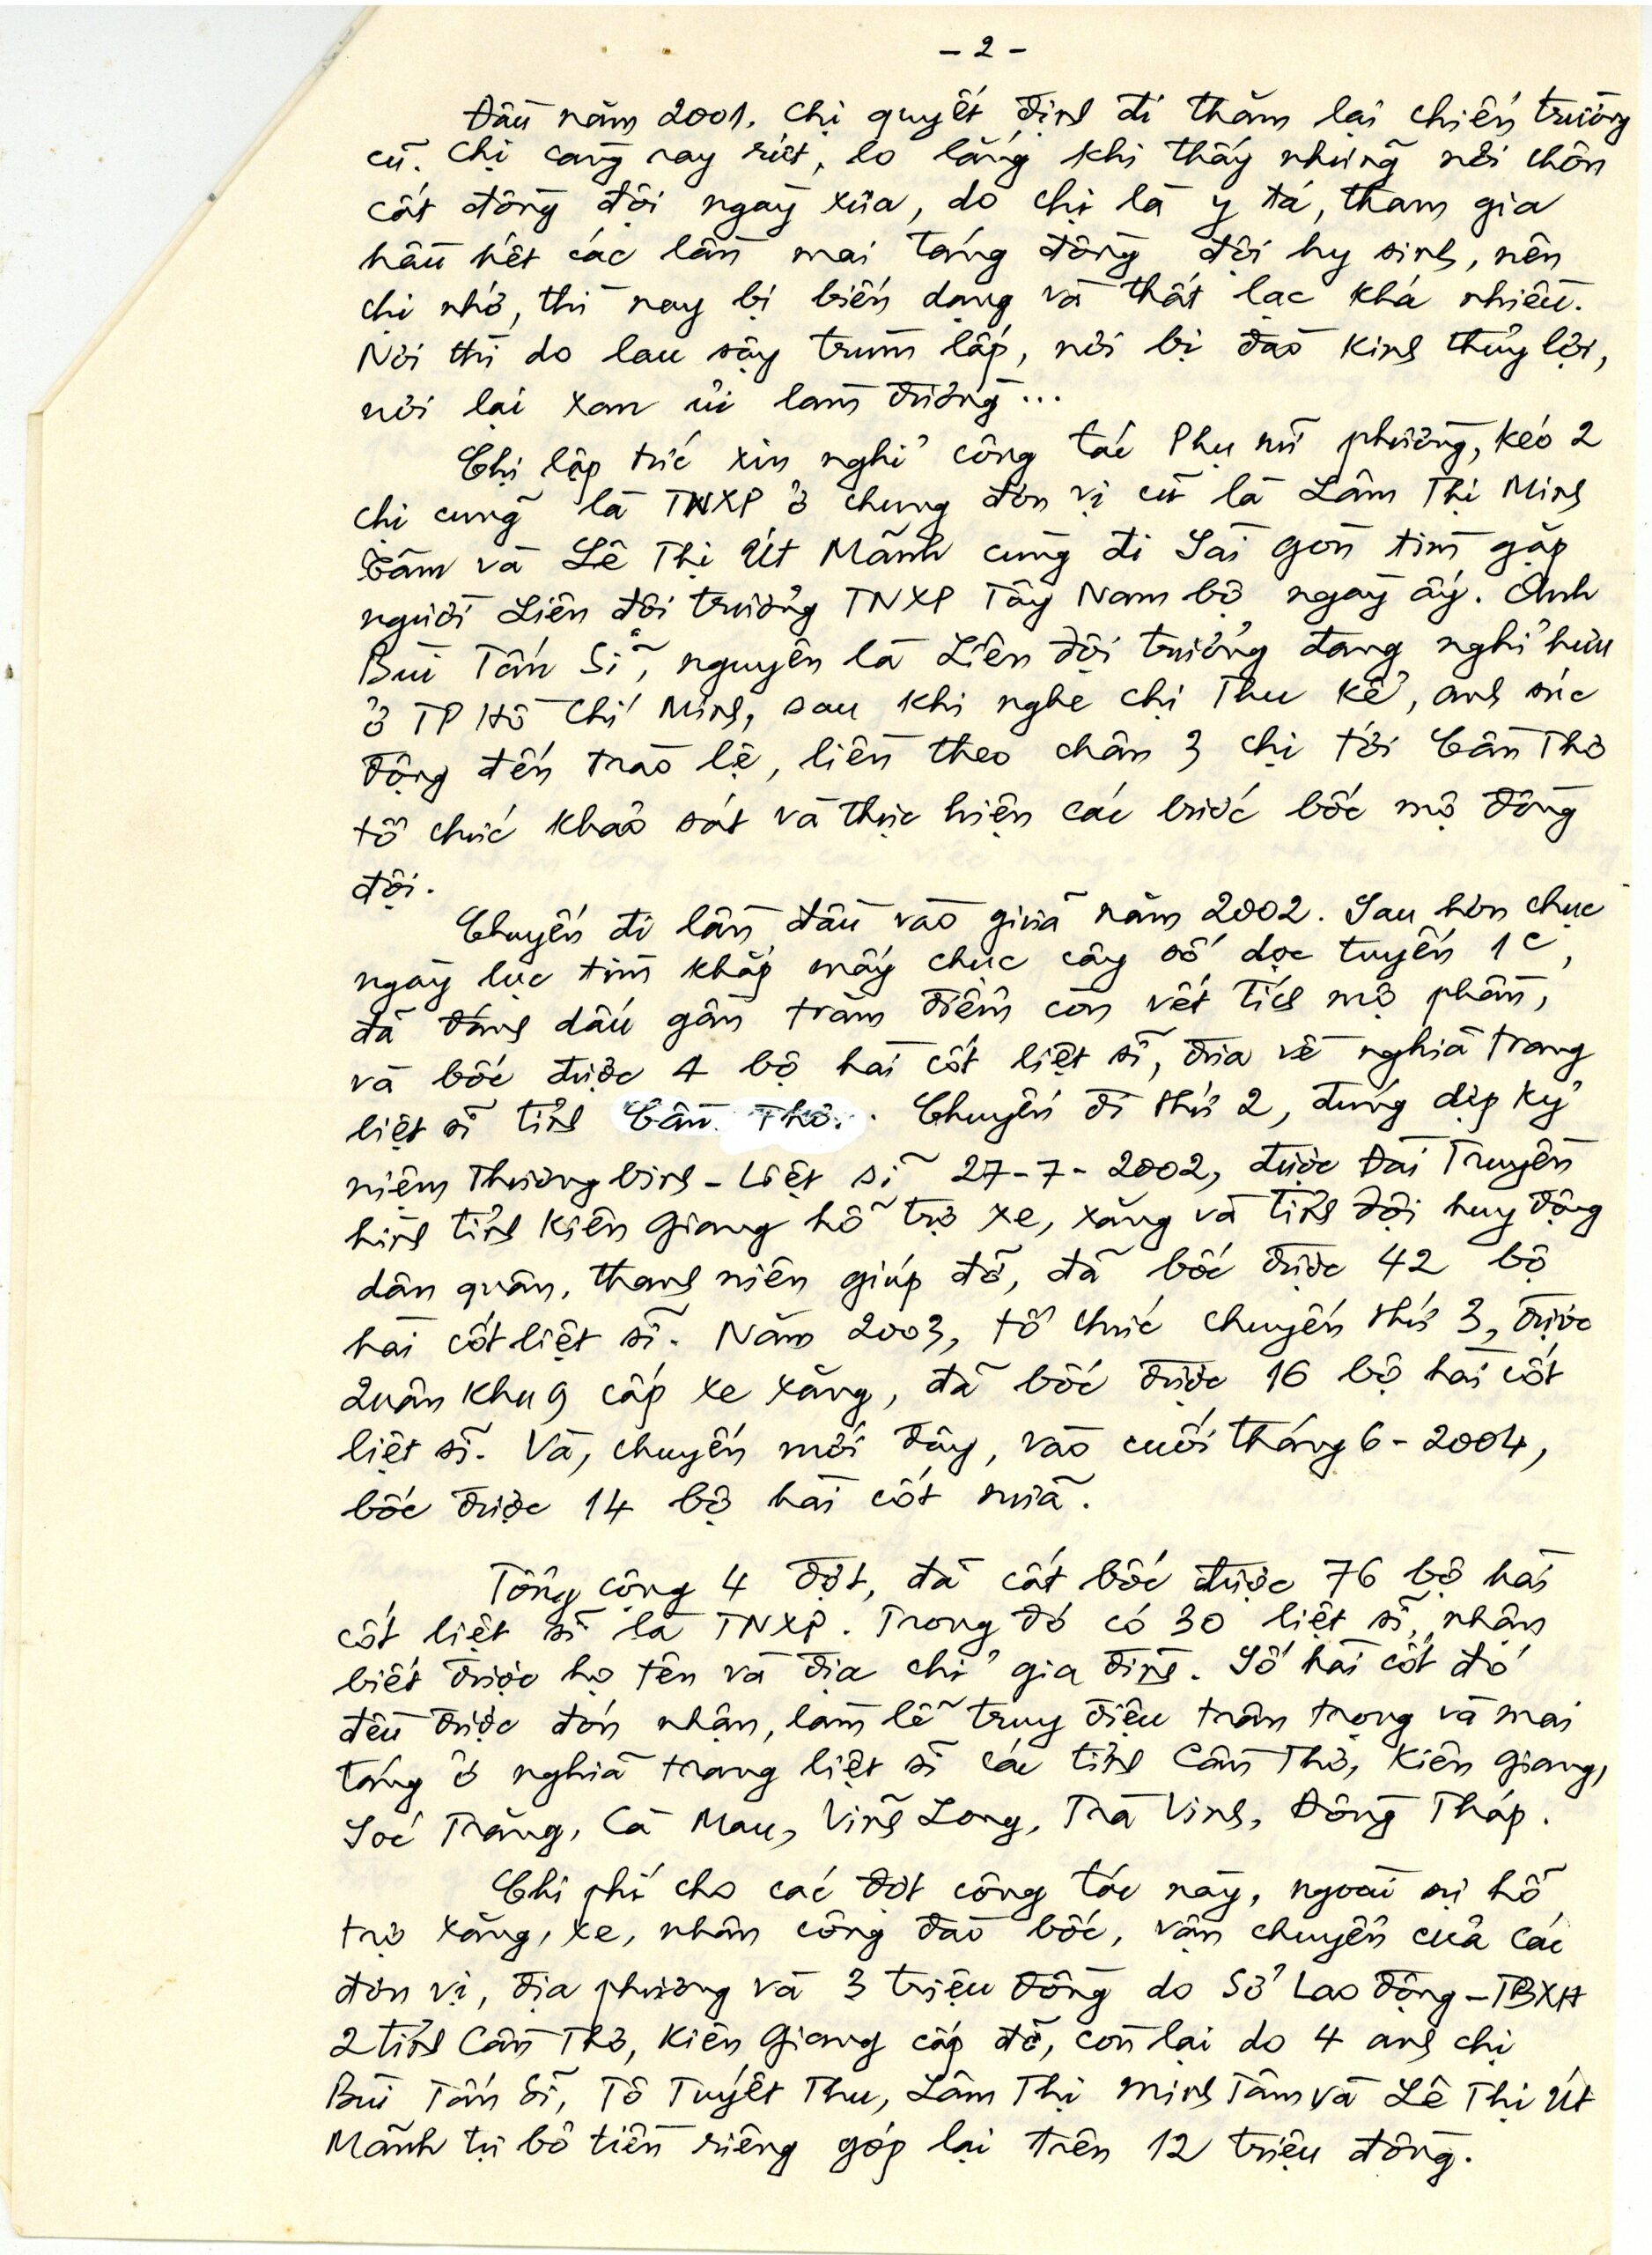 - 2 -
Đầu năm 2001, chị quyết định đi thăm lại chiến trường
cũ. Chị càng ray rứt, lo lắng khi thấy những nơi chôn
cất đồng đội ngày xưa, do chị là y tá, tham gia
hầu hết các lần mai táng đồng đội hy sinh, nên
chị nhớ, thì nay bị biến dạng và thất lạc khá nhiều.
Nơi thì do lau sậy trùm lấp, nơi bị đào kinh thủy lợi,
nơi lại xan ủi làm đường...
Chị lập tức xin nghỉ công tác Phụ nữ phường, kéo 2
chị cũng là TNXP ở chung đơn vị cũ là Lâm Thị Minh
Tâm và Lê Thị Út Mảnh cùng đi Sài Gòn tìm gặp
người Liên đội trưởng TNXP Tây Nam bộ ngày ấy. Anh
Bùi Tấn Sĩ, nguyên là Liên đội trưởng đang nghỉ hưu
ở TP Hồ Chí Minh, sau khi nghe chị Thu kể, anh xúc
động đến trào lệ, liền theo chân 3 chị tới Cần Thơ
tổ chức khảo sát và thực hiện các bước bốc mộ đồng
đội.
Chuyến đi lần đầu vào giữa năm 2002. Sau hơn chục
ngày lục tìm khắp mấy chục cây số dọc tuyến 1C,
đã đánh dấu gần trăm điểm còn vết tích mộ phần,
và bốc được 4 bộ hài cốt liệt sĩ, đưa về nghĩa trang
liệt sĩ tỉnh Cần Thơ. Chuyến đi thứ 2, đúng dịp kỷ
niệm Thương binh - Liệt sĩ 27-7-2002, được Đài Truyền
hình tỉnh Kiên Giang hỗ trợ xe, xăng và tỉnh đội huy động
dân quân, thanh niên giúp đỡ, đã bốc được 42 bộ
hài cốt liệt sĩ. Năm 2003, tổ chức chuyến thứ 3, được
Quân khu 9 cấp xe xăng, đã bốc được 16 bộ hài cốt
liệt sĩ. Và, chuyến mới đây, vào cuối tháng 6-2004,
bốc được 14 bộ hài cốt nữa.
Tổng cộng 4 đợt, đã cất bốc được 76 bộ hài
cốt liệt sĩ là TNXP. Trong đó có 30 liệt sĩ, nhận
biết được họ tên và địa chỉ gia đình. Số hài cốt đó
đều được đón nhận, làm lễ truy điệu trân trọng và mai
táng ở nghĩa trang liệt sĩ các tỉnh Cần Thơ, Kiên Giang,
Sóc Trăng, Cà Mau, Vĩnh Long, Trà Vinh, Đồng Tháp.
Chi phí cho các đợt công tác này, ngoài sự hỗ
trợ xăng, xe, nhân công đào bốc, vận chuyển của các
đơn vị, địa phương và 3 triệu đồng do Sở Lao động-TBXH
2 tỉnh Cần Thơ, Kiên Giang cấp đỡ, còn lại do 4 anh chị
Bùi Tấn Sĩ, Tô Tuyết Thu, Lâm Thị Minh Tâm và Lê Thị Út
Mảnh tự bỏ tiền riêng góp lại trên 12 triệu đồng.